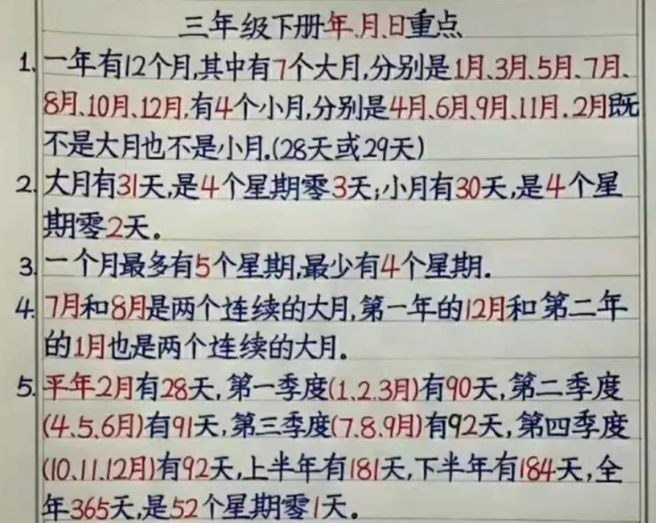 三年级下册年、月、日重点
1、一年有12个月,其中有7个大月,分别是1月、3月、5月、7月、
8月、10月、12月,有4个小月,分别是4月、6月、9月、11月.2月既
不是大月也不是小月.(28天或29天)
2、大月有31天,是4个星期零3天;小月有30天,是4个星
期零2天。
3、一个月最多有5个星期,最少有4个星期.
4、7月和8月是两个连续的大月,第一年的12月和第二年
的1月也是两个连续的大月。
5、平年2月有28天,第一季度(1、2、3月)有90天,第二季度
(4、5、6月)有91天,第三季度(7、8、9月)有92天,第四季度
(10、11、12月)有92天,上半年有181天,下半年有184天,全
年365天,是52个星期零1天。